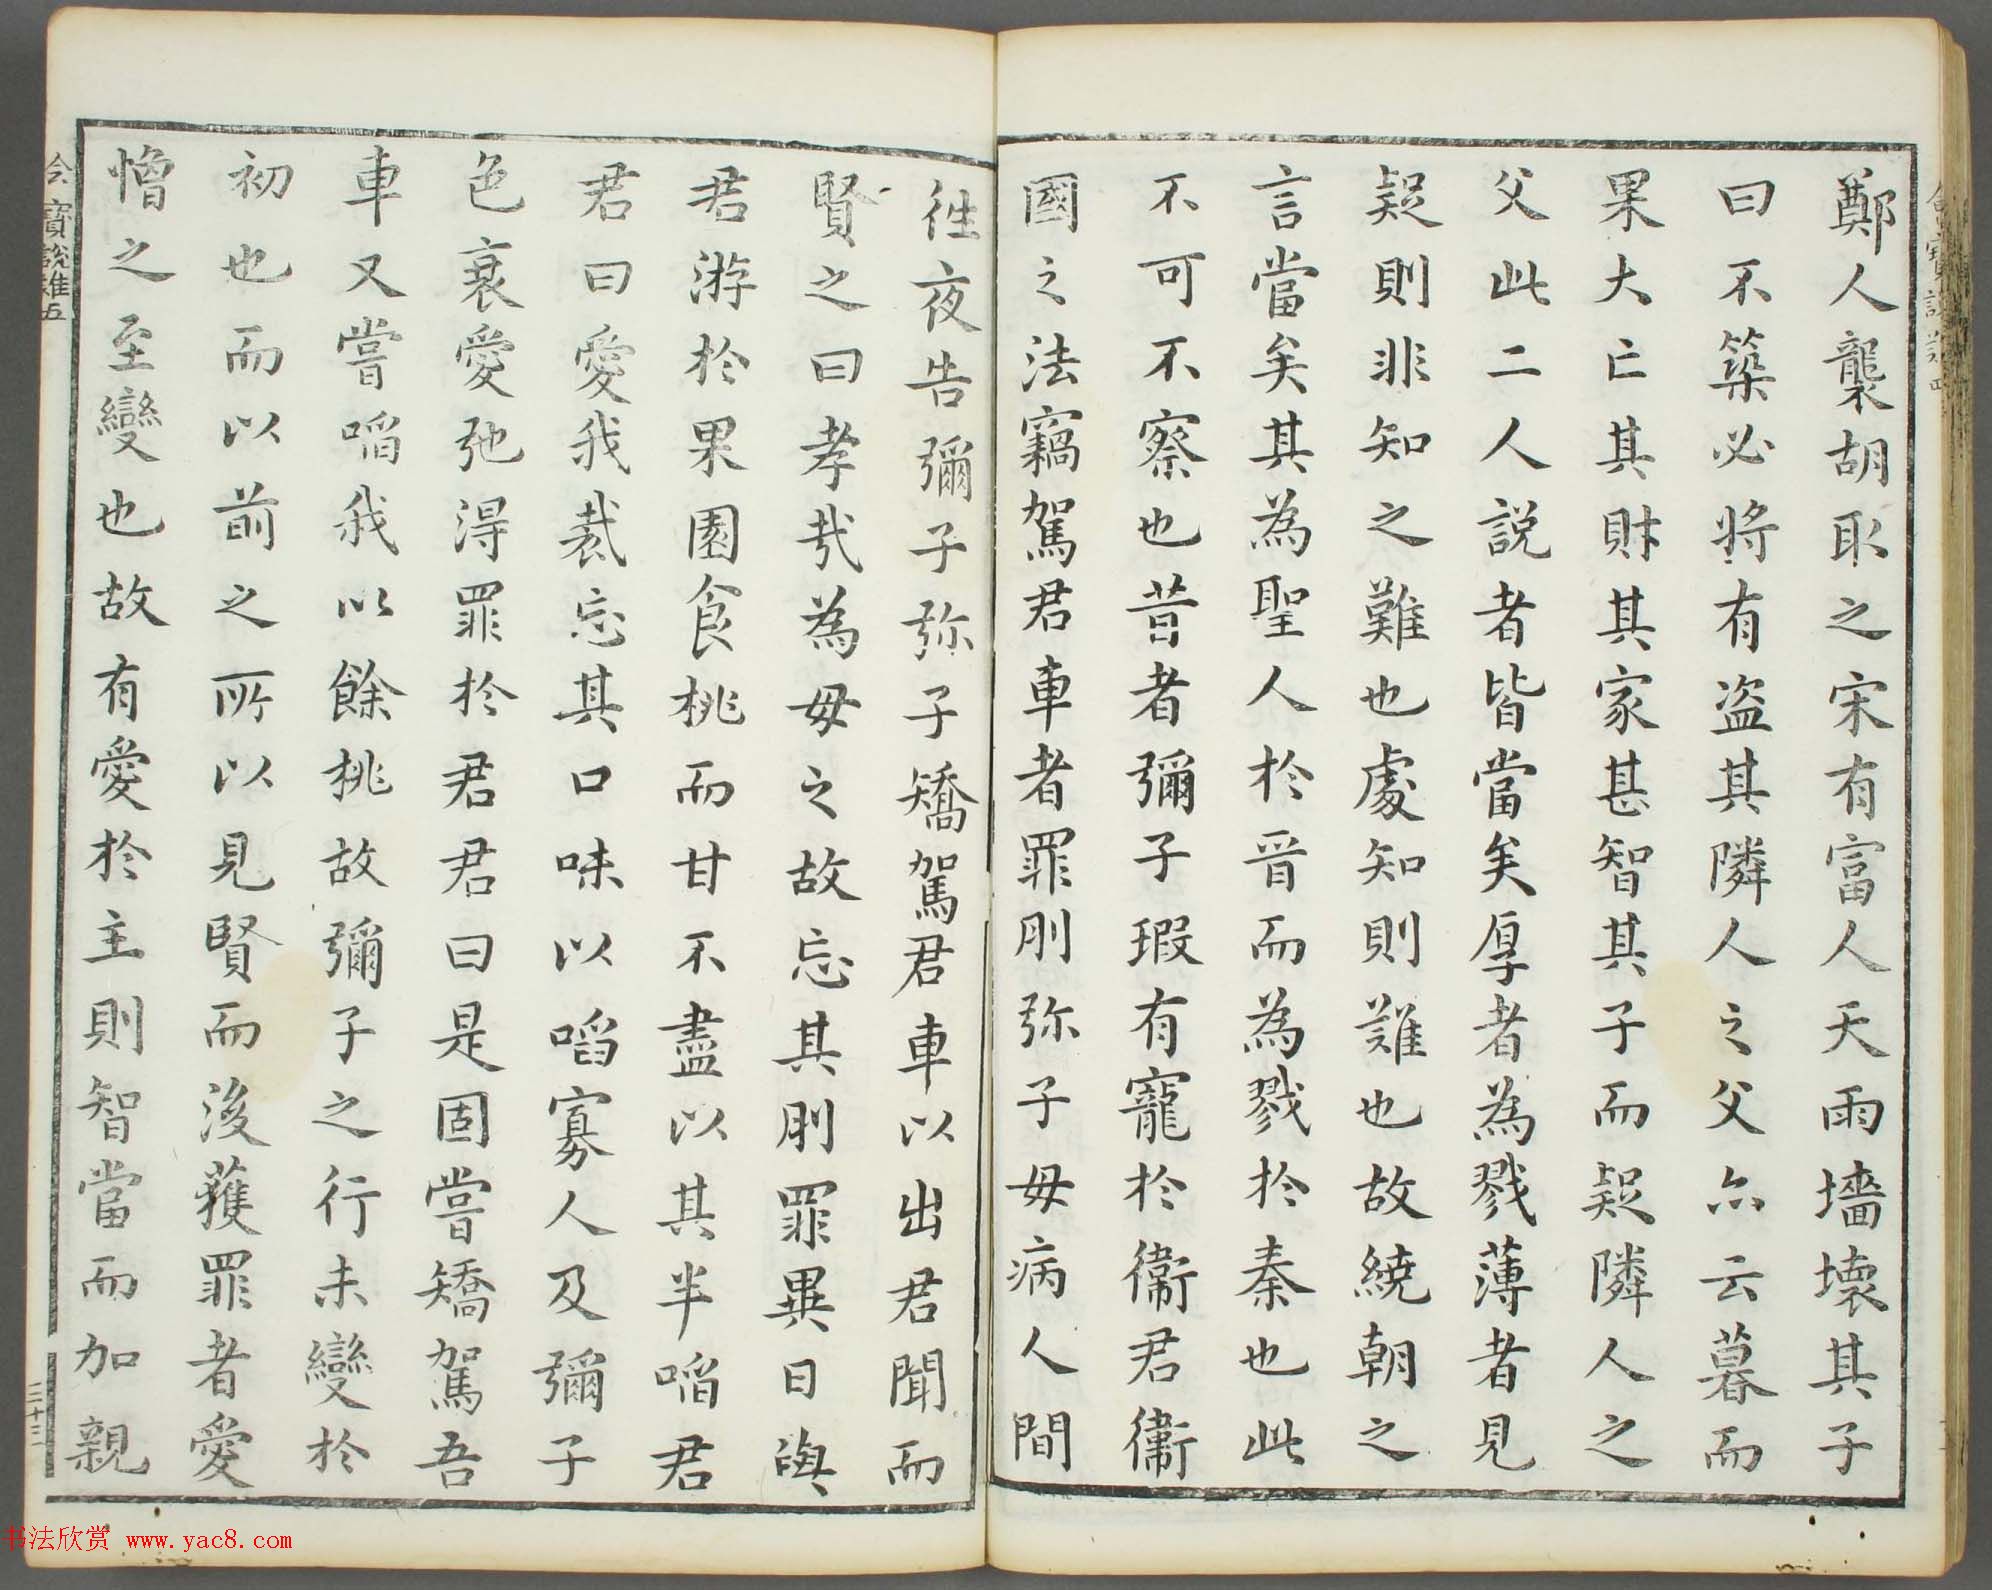 鄭人襲胡取之宋有富人天雨墻壞其子
曰不築必將有盗其隣人之父亦云暮而
果大亡其財其家甚智其子而疑隣人之
父此二人說者皆當矣厚者為戮薄者見
疑則非知之難也處知則難也故繞朝之
言當矣其為聖人於晋而為戮於秦也此
不可不察也昔者彌子瑕有寵於衞君衞
國之法竊駕君車者罪刖弥子母病人間
徃夜告彌子弥子矯駕君車以出君聞而
賢之曰孝哉為母之故忘其刖罪異日與
君游於果園食桃而甘不盡以其半啗君
君曰愛我哉忘其口味以啗寡人及彌子
色衰愛弛得罪於君君曰是固嘗矯駕吾
車又嘗啗我以餘桃故彌子之行未變於
初也而以前之所以見賢而後獲罪者愛
憎之至變也故有愛於主則智當而加親
寶說難五
二十三
书法欣赏 www.yac8.com